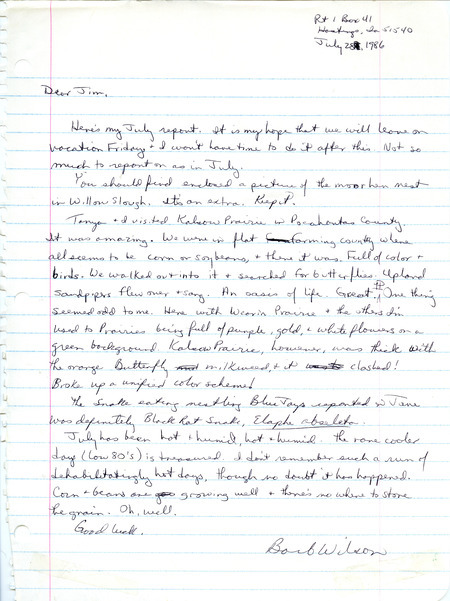 Rt 1 Box 41
Hastings, Ia 51540
July 28, 1986
Dear Jim,
Here's my July report. It is my hope that we will leave on
vacation Friday & I won't have time to do it after this. Not so
much to report on as in July.
You should find enclosed a picture of the moorhen nest
in Willow Slough. It's an extra. Keep it.
Tanya & I visited Kalsow Prairie in Pocahontas County.
It was amazing. We were in flat farming country where
all seems to be corn or soybeans, & there it was. Full of color &
birds. We walked out into it & searched for butterflies. Upland
sandpipers flew over & sang. An oases of life. Great!! One thing
seemed odd to me. Here with Wearin Prairie & the others I'm
used to Prairies being full of purple, gold, & white flowers on a
green background. Kalsow Prairie, however, was thick with
the orange Butterfly milkweed, & it clashed!
Broke up a unified color scheme!
The snake eating nestling Blue Jays reported in June
was definitely Black Rat Snake, Elaphe obsoleta.
July has been hot & humid, hot & humid. The rare cooler
day (low 80's) is treasured. I don't remember such a run of
dehabilitatingly hot days, though no doubt it has happened.
Corn & beans are growing well & there's no where to store
the grain. Oh, well.
Good luck.
Barb Wilson